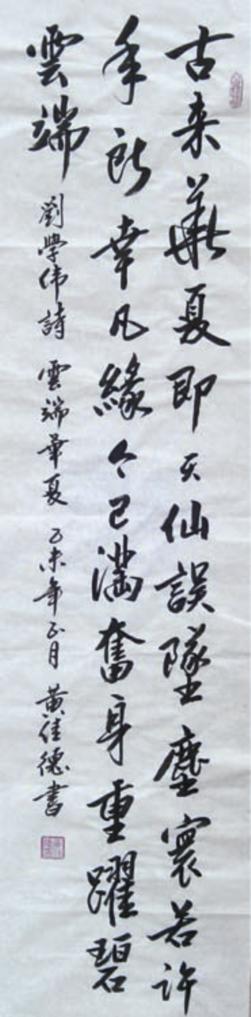 古来華夏即天仙誤墜塵寰若許
年所幸凡緣今已滿奮身重躍碧
雲端 劉學伟詩 雲端華夏 乙未年正月 黄佳德書